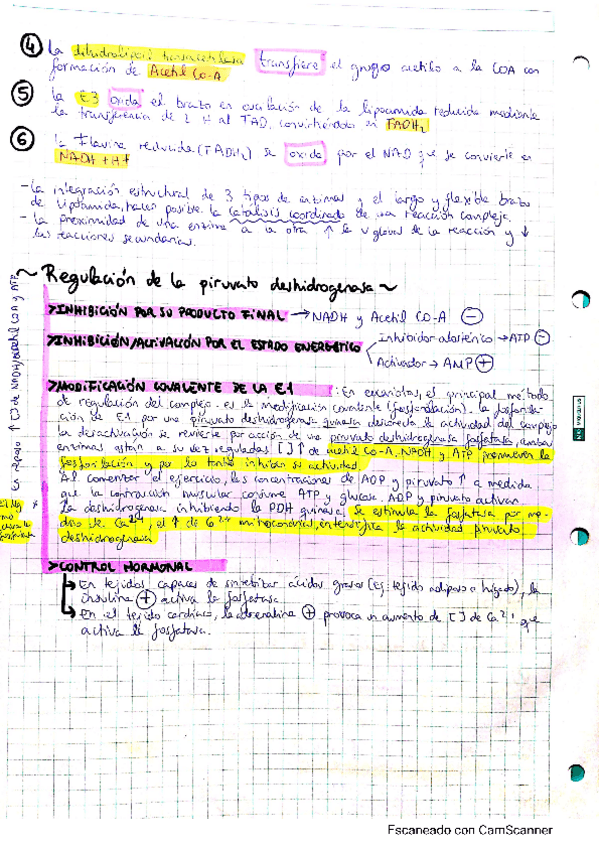 ④ La dihidrolipoil transacetilasa transfiere el grupo acetilo a la COA con
formación de Acetil Co-A
⑤ La E3 oxida el brazo en oxidación de la lipoamida reducida mediante
la transferencia de 2 H al FAD, convirtiéndolo en FADH2
⑥ la flavina reducida (FADH2) se oxida por el NAD que se convierte en
NADH + H+
- La integración estructural de 3 tipos de enzimas y el largo y flexible brazo
de lipoamida, hacen posible la catálisis coordinada de una reacción compleja.
- La proximidad de una enzima a la otra ↑ la v global de la reacción y ↓
las reacciones secundarias.
~ Regulación de la piruvato deshidrogenasa ~
>INHIBICIÓN POR SU PRODUCTO FINAL → NADH y Acetil CO-A ⊖
>INHIBICIÓN/ACTIVACIÓN POR EL ESTADO ENERGÉTICO
Inhibidor alostérico → ATP ⊖
Activador → AMP ⊕
>MODIFICACIÓN COVALENTE DE LA E1 : En eucariotas, el principal método
de regulación del complejo es la modificación covalente (fosforilación). La fosforila-
ción de E1 por una piruvato deshidrogenasa quinasa la actividad del complejo
la desactivación se revierte por acción de una piruvato deshidrogenasa fosfatasa, ambas
enzimas están a su vez reguladas [] ↑ de acetil Co-A, NADH, y ATP promueven la
fosforilación y por lo tanto inhiben su actividad.
Al comenzar el ejercicio, las concentraciones de ADP y piruvato ↑ a medida
que la contracción muscular consume ATP y glucosa. ADP y piruvato activan
la deshidrogenasa inhibiendo la PDH quinasa, se estimula la fosfatasa por me-
dio de Ca2+, el ↑ de Ca2+ mitocondrial, intensifica la actividad piruvato
deshidrogenasa
En reposo ↑ [] de NADH, acetil COA y ATP
El Mg
>CONTROL HORMONAL
En tejidos capaces de sintetizar ácidos grasos (ej: tejido adiposo e hígado), la
insulina ⊕ activa la fosfatasa
En el tejido cardíaco, la adrenalina ⊕ provoca un aumento de [] de Ca2+ que
activa la fosfatasa.
Escaneado con CamScanner